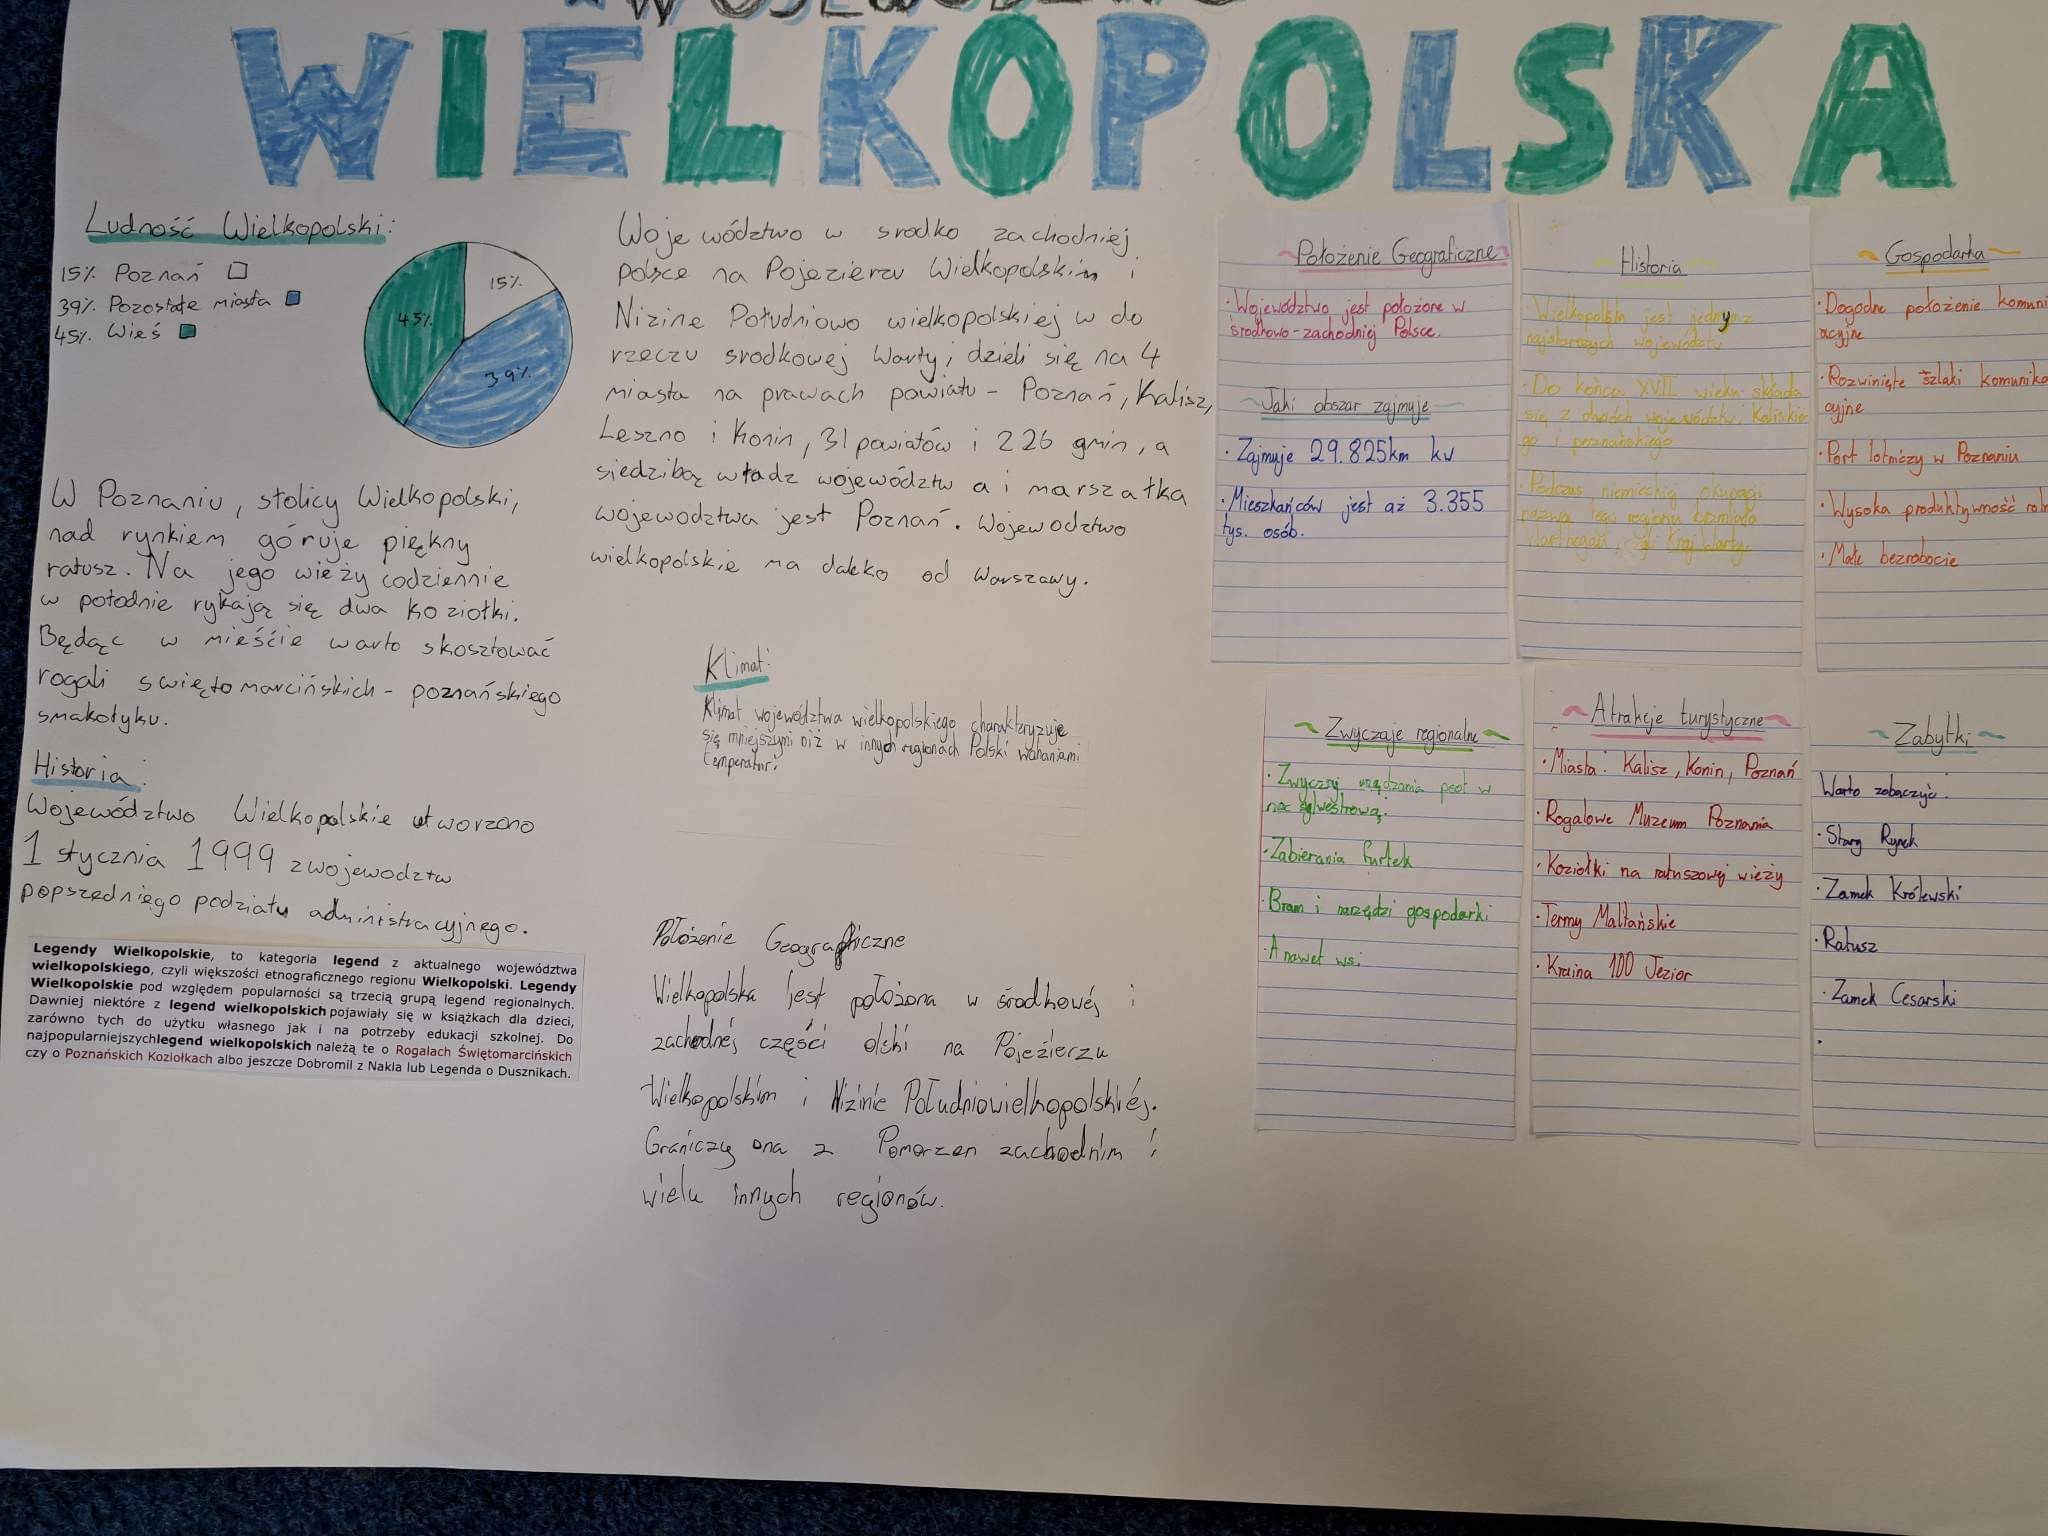 WIELKOPOLSKA
Ludność Wielkopolski:
15% Poznań
39% Pozostałe miasta
45% Wieś
15%
45%
39%
W Poznaniu, stolicy Wielkopolski,
nad rynkiem góruje piękny
ratusz. Na jego wieży codziennie
w połodnie rykają się dwa koziołki.
Będąc w mieście warto skosztować
rogali swiętomarcińskich - poznańskiego
smakołyku.
Historia:
Województwo Wielkopolskie utworzono
1 stycznia 1999 z wojewodztw
popszedniego podziału administracyjnego.
Legendy Wielkopolskie, to kategoria legend z aktualnego województwa
wielkopolskiego, czyli większości etnograficznego regionu Wielkopolski. Legendy
Wielkopolskie pod względem popularności są trzecią grupą legend regionalnych.
Dawniej niektóre z legend wielkopolskich pojawiały się w książkach dla dzieci,
zarówno tych do użytku własnego jak i na potrzeby edukacji szkolnej. Do
najpopularniejszychlegend wielkopolskich należą te o Rogalach Świętomarcińskich
czy o Poznańskich Koziołkach albo jeszcze Dobromil z Nakla lub Legenda o Dusznikach.
Województwo w srodko zachodniej
polsce na Pojezierzu Wielkopolskim i
Nizine Południowo wielkopolskiej w do
rzeczu srodkowej Warty; dzieli się na 4
miasta na prawach powiatu - Poznań, Kalisz,
Leszno i Konin, 31 powiatów i 226 gmin, a
siedzibą władz województw a i marszałka
wojewodztwa jest Poznań. Wojewodztwo
wielkopolskie ma daleko od Warszawy.
Klimat:
Klimat województwa wielkopolskiego charakteryzuje
się mniejszymi niż w innych regionach Polski wahaniami
temperatur.
Położenie Geograficzne
Wielkopolska jest położona w środkowej i
zachodnej części olski na Pojeźierzu
Wielkopolskim i Niźinie Południowielkopolskiéj.
Graniczy ona z Pomorzen zachodnim i
wielu innych regionów.
Położenie Geograficzne
• Województwo jest położone w
środkowo-zachodniej Polsce.
Jaki obszar zajmuje
• Zajmuje 29.825km kw
• Mieszkańców jest aż 3.355
tys. osób.
Historia
• Wielkopolska jest jednym z
najstarszych województw
• Do końca XVII wieku składa
się z dwóch województw: Kaliskie
go i poznańskiego.
• Podczas niemieckiej okupacji
nazwa tego regionu brzmiała
Warthegau, Kraj Warty.
Gospodarka
• Dogodne położenie komuni
acyjne
• Rozwinięte szlaki komunika
cyjne
• Port lotniczy w Poznaniu
• Wysoka produktywność roln
• Małe bezrobocie
Zwyczaje regionalne
• Zwyczaj urządzania psot w
noc sylwestrową:
• Zabierania furtek
• Bram i narzędzi gospodarki
• A nawet wsi
Atrakcje turystyczne
• Miasta: Kalisz, Konin, Poznań
• Rogalowe Muzeum Poznania
• Koziołki na ratuszowej wieży
• Termy Maltańskie
• Kraina 100 Jezior
Zabytki
Warto zobaczyć:
• Stary Rynek
• Zamek Królewski
• Ratusz
• Zamek Cesarski
•